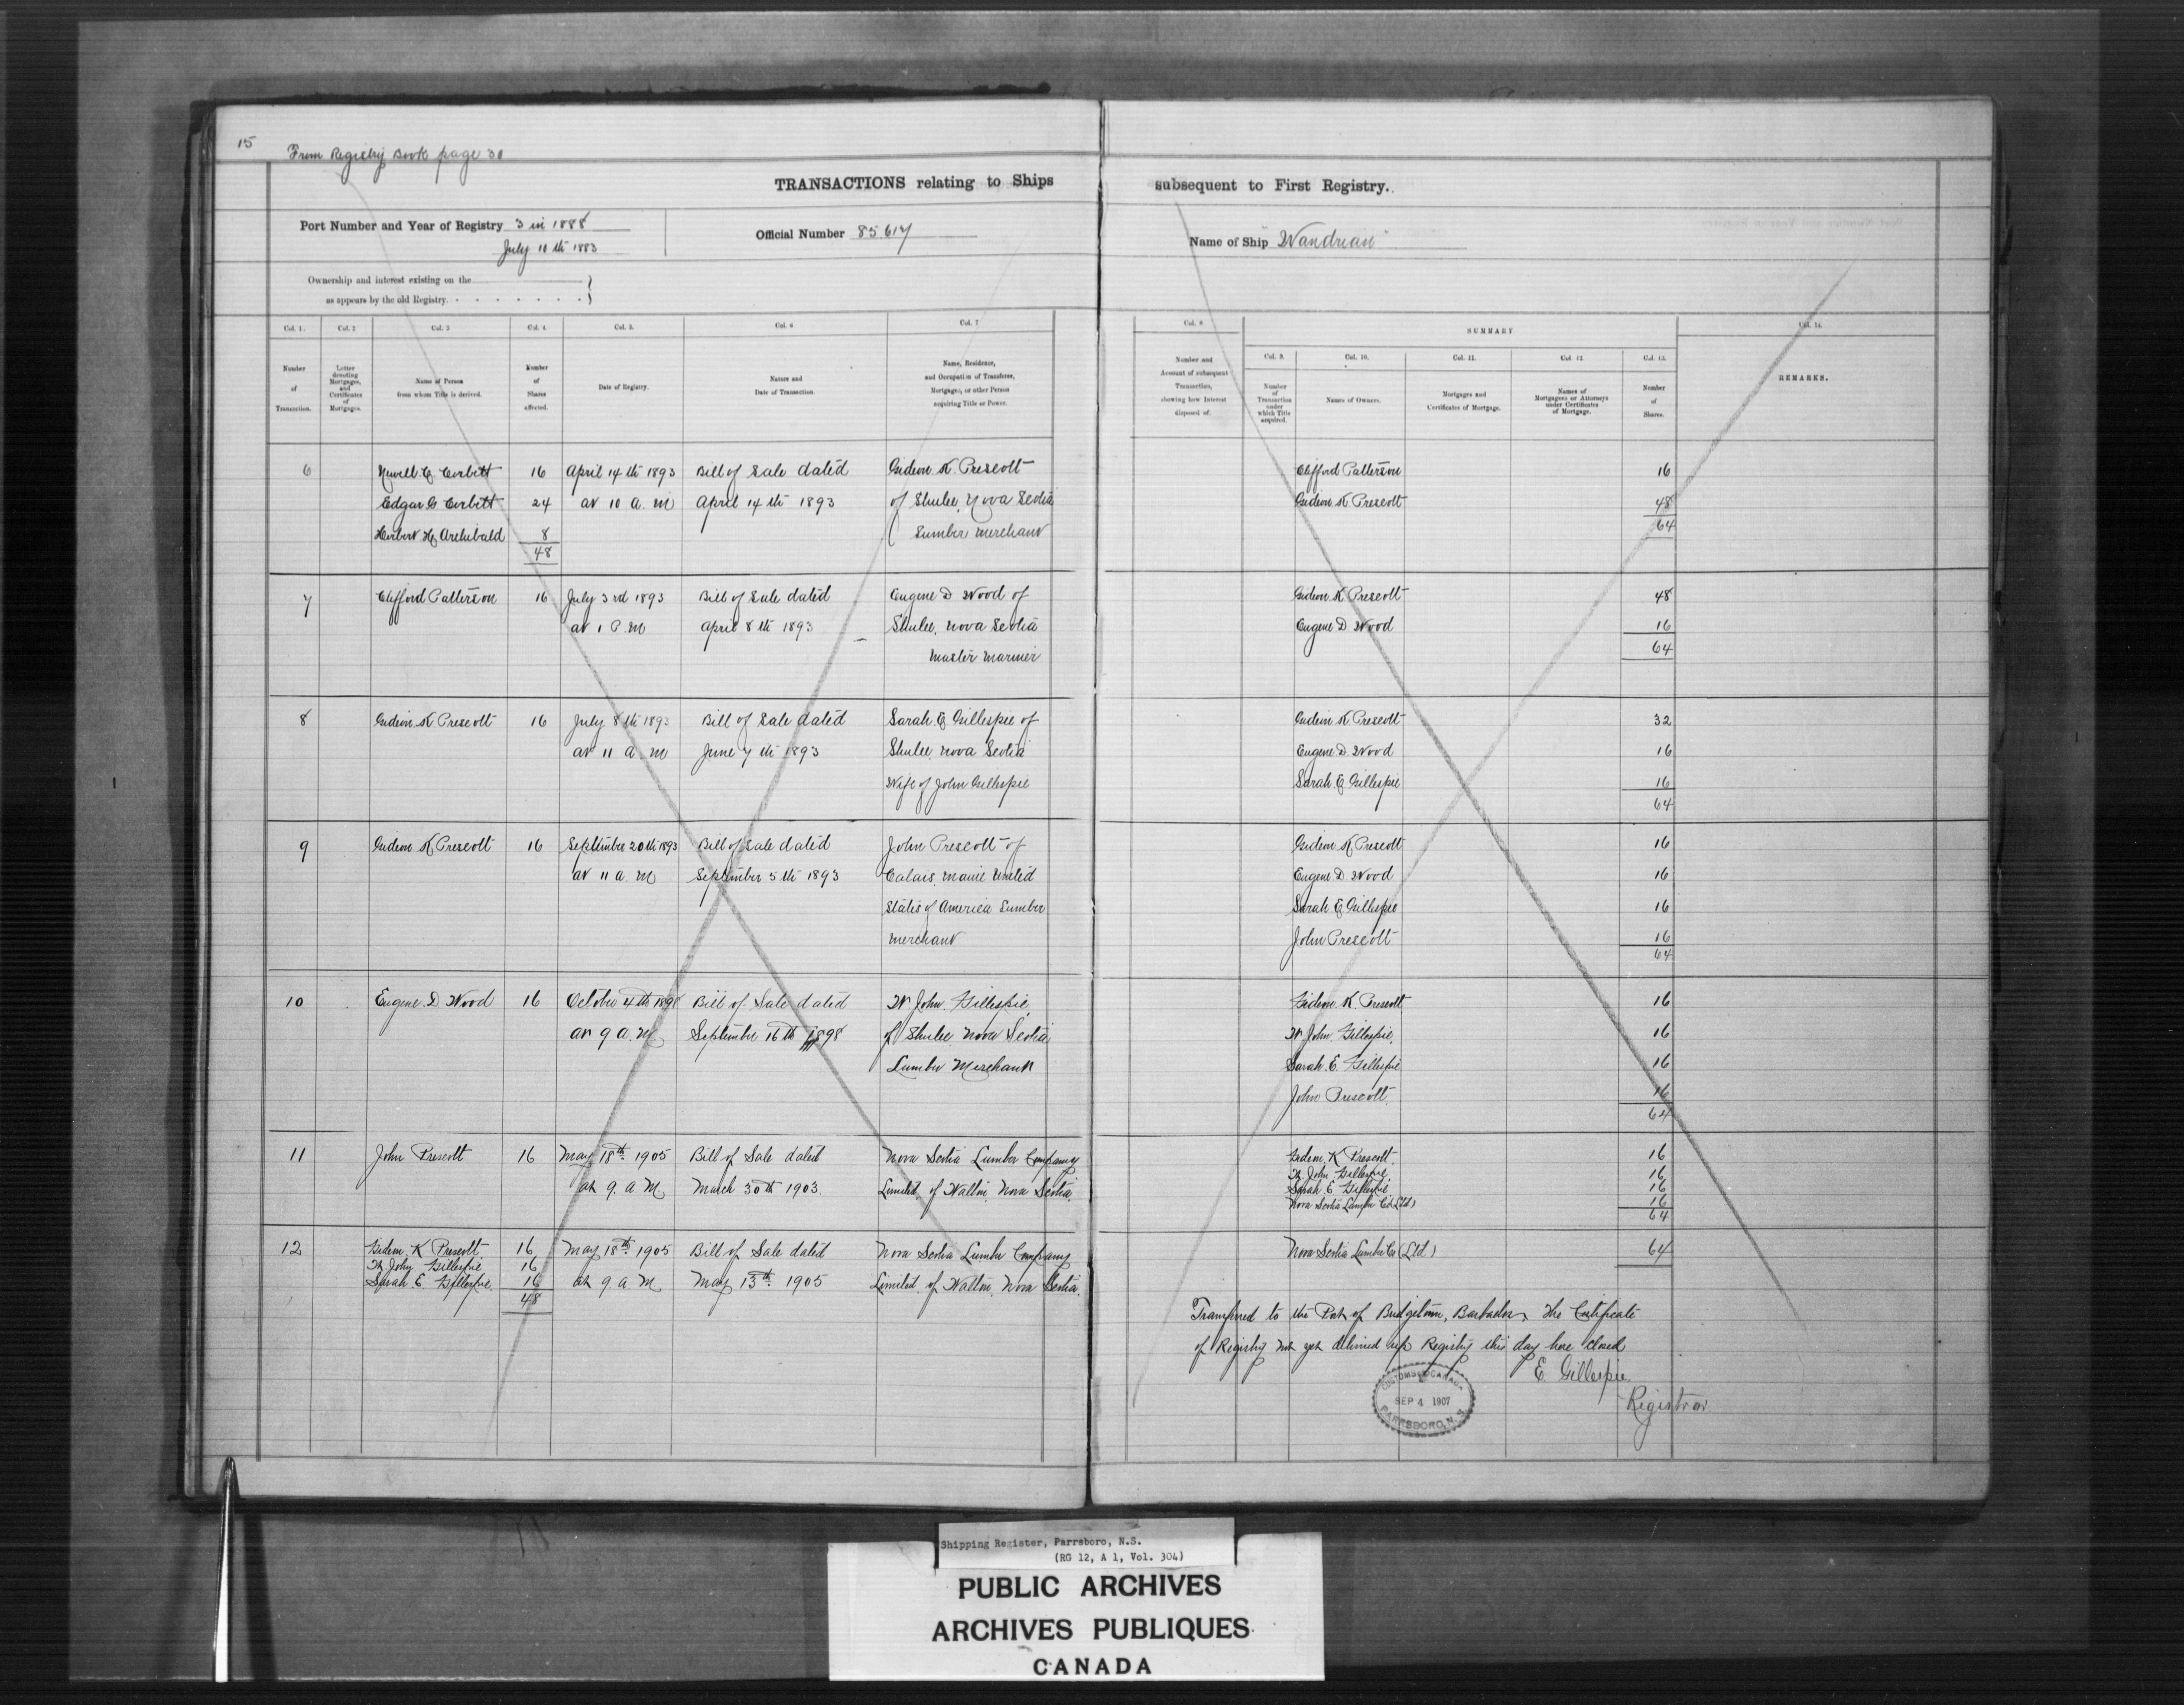 15
From Registry Book page 30
TRANSACTIONS relating to Ships
subsequent to First Registry.
Port Number and Year of Registry 3 in 1888
July 10th 1883
Official Number 85617
Name of Ship "Wandrian"
Ownership and interest existing on the
as appears by the old Registry.
Col. 1. Col. 2 Col. 3 Col. 4. Col. 5. Col. 6 Col. 7
Number of Transaction.
Letter denoting Mortgages, and Certificates of Mortgages.
Name of Person from whom Title is derived.
Number of Shares affected.
Date of Registry.
Nature and Date of Transaction.
Name, Residence, and Occupation of Transferee, Mortgagee, or other Person acquiring Title or Power.
Col. 8.
Number and Account of subsequent Transaction, showing how Interest disposed of.
SUMMARY
Col. 9. Col. 10. Col. 11. Col. 12 Col. 13.
Number of Transaction under which Title acquired.
Names of Owners.
Mortgages and Certificates of Mortgage.
Names of Mortgagees or Attorneys under Certificates of Mortgage.
Number of Shares.
Col. 14.
REMARKS.
6 Newell C Corbett 16 April 14th 1893 Bill of Sale dated Gideon K Prescott
Edgar G Corbett 24 at 10 a. m April 14th 1893 of Shulee, Nova Scotia
Herbert H Archibald 8 Lumber merchant
48
Clifford Patterson 16
Gideon K Prescott 48
64
7 Clifford Patterson 16 July 3rd 1893 Bill of Sale dated Eugene D Wood of
at 1 P. M April 8th 1893 Shulee, Nova Scotia
Master Mariner
Gideon K Prescott 48
Eugene D Wood 16
64
8 Gideon K Prescott 16 July 8th 1893 Bill of Sale dated Sarah E Gillespie of
at 11 a. m June 7th 1893 Shulee, Nova Scotia
Wife of John Gillespie
Gideon K Prescott 32
Eugene D. Wood 16
Sarah E Gillespie 16
64
9 Gideon K Prescott 16 September 20th 1893 Bill of Sale dated John Prescott of
at 11 a. m September 5th 1893 Calais, Maine United
States of America Lumber
merchant
Gideon K Prescott 16
Eugene D Wood 16
Sarah E Gillespie 16
John Prescott 16
64
10 Eugene D Wood 16 October 4th 1898 Bill of Sale dated W John Gillespie,
at 9 a. M September 16th 1898 of Shulee Nova Scotia
Lumber Merchant
Gideon K. Prescott 16
W John Gillespie. 16
Sarah E. Gillespie 16
John Prescott. 16
64
11 John Prescott 16 May 18th 1905 Bill of Sale dated Nova Scotia Lumber Company
at 9. a M March 30th 1903. Limited, of Walton, Nova Scotia.
Gideon K Prescott. 16
W. John Gillespie. 16
Sarah E Gillespie 16
Nova Scotia Lumber Co (Ltd) 16
64
12 Gideon K Prescott. 16 May 18th 1905 Bill of Sale dated Nova Scotia Lumber Company
W. John Gillespie 16
Sarah E. Gillespie. 16 at 9. a M May 13th 1905 Limited, of Walton, Nova Scotia.
48
Nova Scotia Lumber Co (Ltd) 64
Transferred to the Port of Bridgetown, Barbados, The Certificate
of Registry not yet delivered up Registry this day here closed
E Gillespie
Registrar
CUSTOMS CANADA
SEP 4 1907
PARRSBORO, N.S.
Shipping Register, Parrsboro, N.S.
(RG 12, A 1, Vol. 304)
PUBLIC ARCHIVES
ARCHIVES PUBLIQUES
CANADA